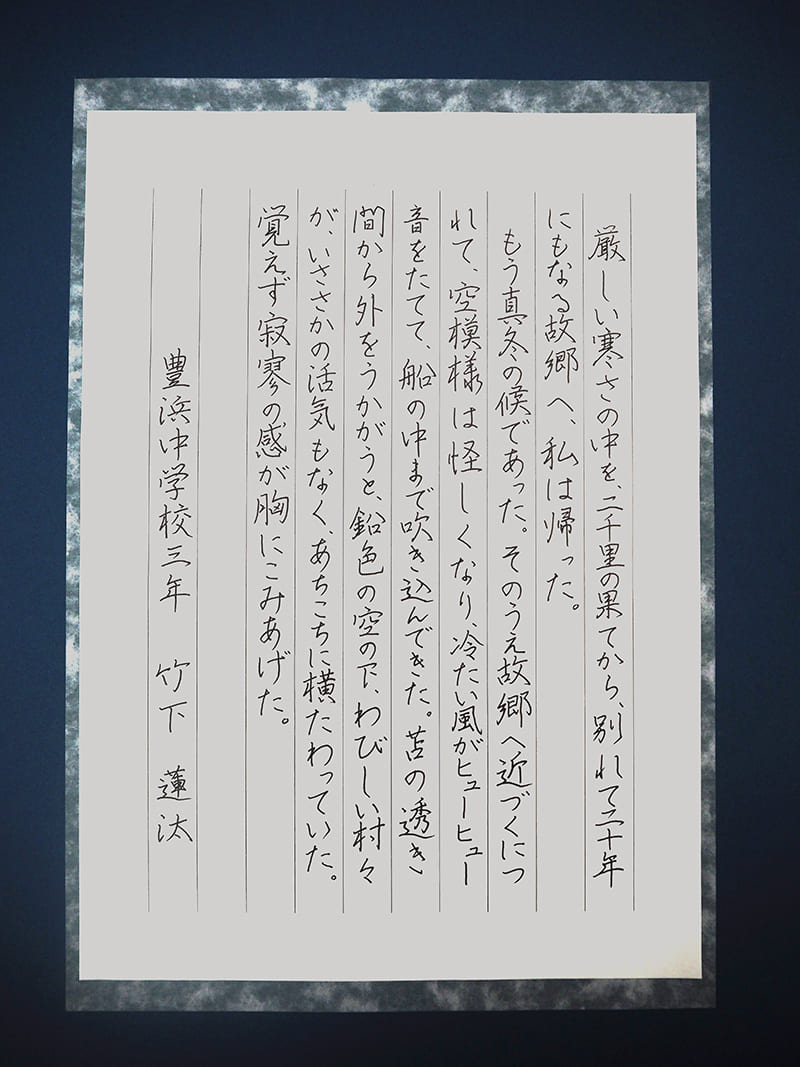 厳しい寒さの中を、二千里の果てから、別れて二十年
にもなる故郷へ、私は帰った。
もう真冬の候であった。そのうえ故郷へ近づくにつ
れて、空模様は怪しくなり、冷たい風がヒューヒュー
音をたてて、船の中まで吹き込んできた。苫の透き
間から外をうかがうと、鉛色の空の下、わびしい村々
が、いささかの活気もなく、あちこちに横たわっていた。
覚えず寂寥の感が胸にこみあげた。
豊浜中学校三年 竹下 蓮汰